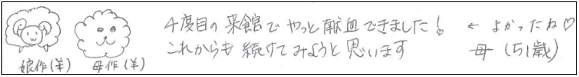 4度目の来館でやっと献血できました! ← よかったね♡
これからも続けてみようと思います 母(51歳)
娘作(羊) 母作(羊)